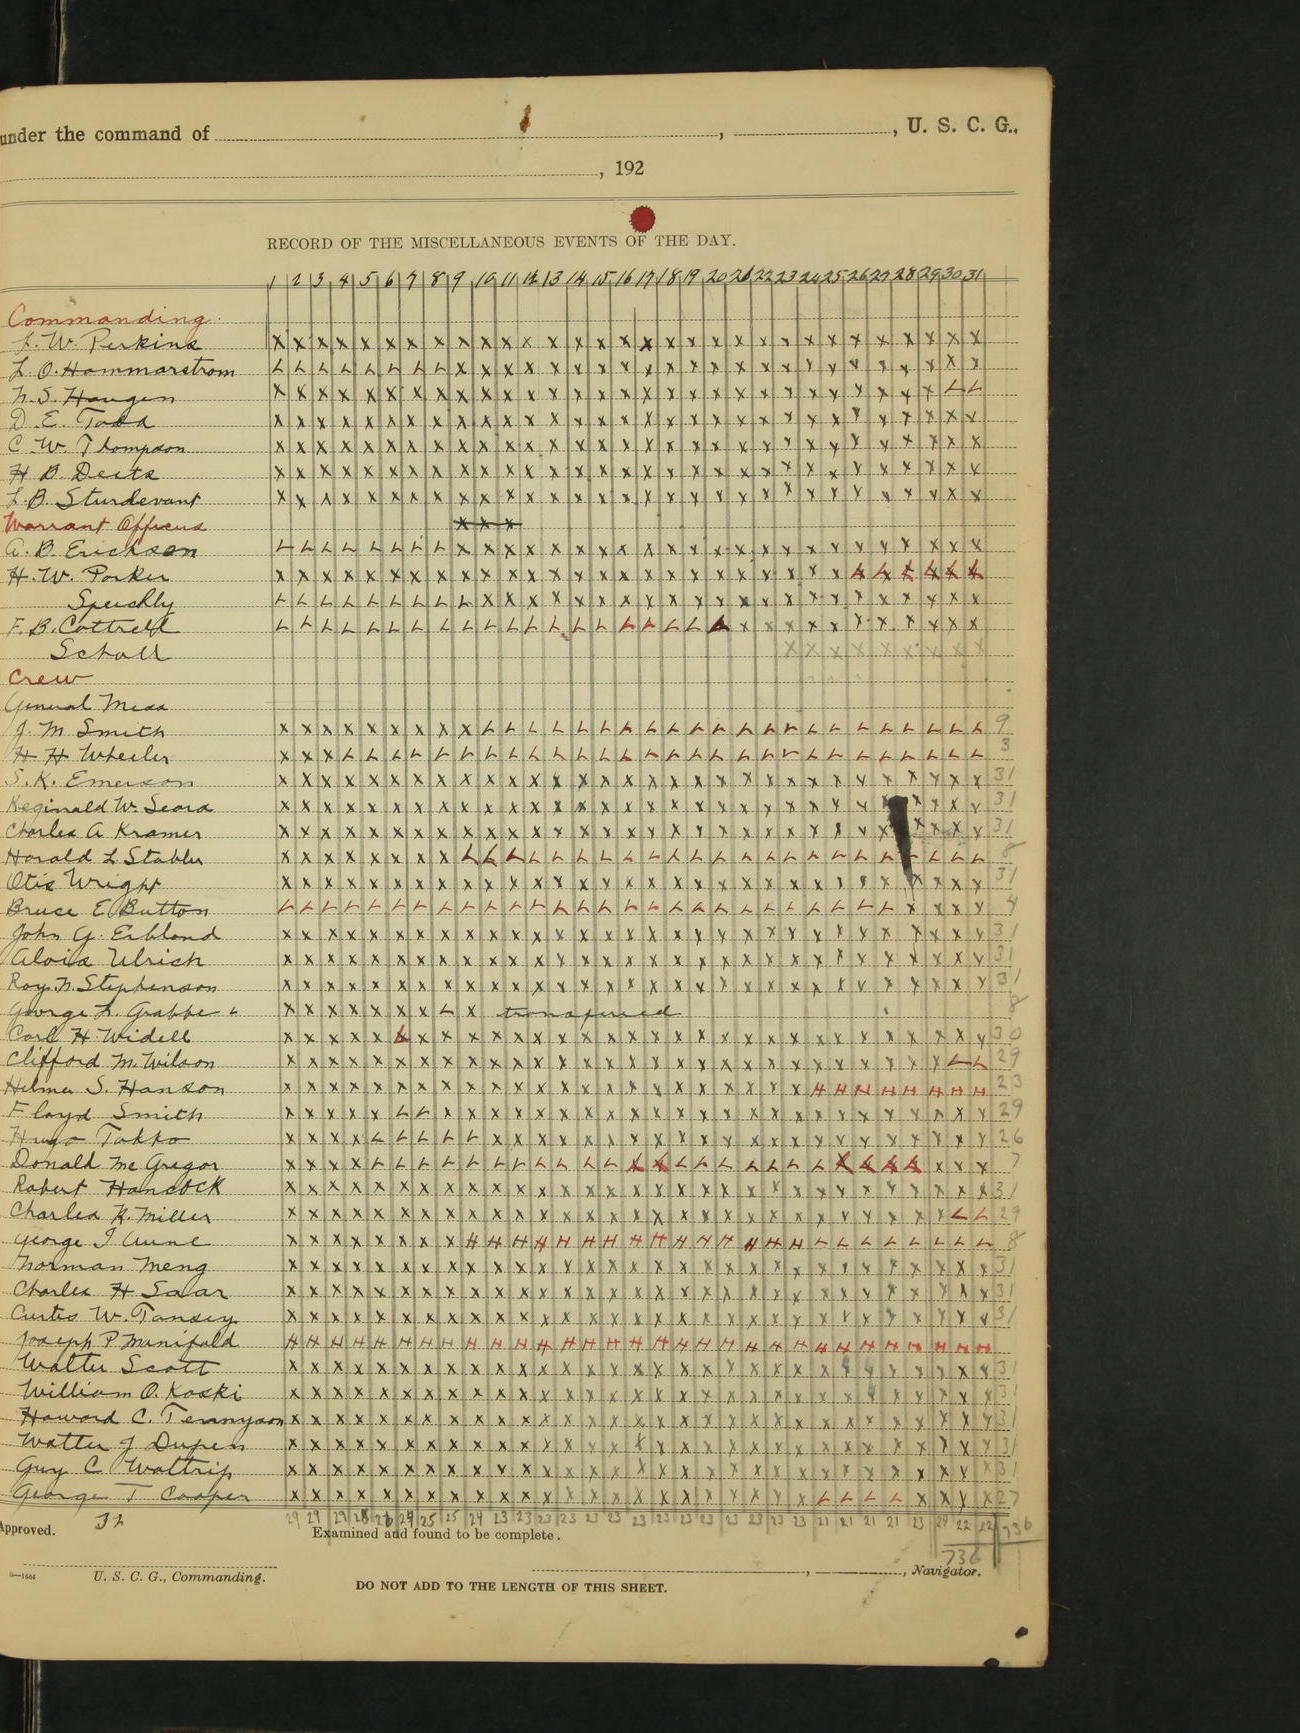 under the command of , , U. S. C. G.,
, 192
RECORD OF THE MISCELLANEOUS EVENTS OF THE DAY.
1 2 3 4 5 6 7 8 9 10 11 12 13 14 15 16 17 18 19 20 21 22 23 24 25 26 27 28 29 30 31
Commanding
W. Perkins x x x x x x x x x x x x x x x x x x x x x x x x x x x x x x x
L. O. Hammarstrom L L L L L L L L x x x x x x x x x x x x x x x x x x x x x x x
N. S. Haugen x x x x x x x x x x x x x x x x x x x x x x x x x x x x x L L
D. E. Todd x x x x x x x x x x x x x x x x x x x x x x x x x x x x x x x
C. W. Thompson x x x x x x x x x x x x x x x x x x x x x x x x x x x x x x x
H B. Deits x x x x x x x x x x x x x x x x x x x x x x x x x x x x x x x
L. B. Sturdevant x x x x x x x x x x x x x x x x x x x x x x x x x x x x x x x
Warrant Officers x x x
A. B. Erickson L L L L L L L L x x x x x x x x x x x x x x x x x x x x x x x
H. W. Parker x x x x x x x x x x x x x x x x x x x x x x x x x L L L L L L
L L L L L L L L L x x x x x x x x x x x x x x x x x x x x x x
F. B. Cottrell L L L L L L L L L L L L L L L L L L L L x x x x x x x x x x x
Scholl x x x x x x x x x
Crew
General Mess
J. M Smith x x x x x x x x x L L L L L L L L L L L L L L L L L L L L L L 9
H H Wheeler x x x L L L L L L L L L L L L L L L L L L L L L L L L L L L L 3
S. K. Emerson x x x x x x x x x x x x x x x x x x x x x x x x x x x x x x x 31
Reginald W. Sears x x x x x x x x x x x x x x x x x x x x x x x x x x x x x x 31
Charles A Kramer x x x x x x x x x x x x x x x x x x x x x x x x x x x x x x 31
Harald L Stabler x x x x x x x x L L L L L L L L L L L L L L L L L L L L L L L 8
Otis Wright x x x x x x x x x x x x x x x x x x x x x x x x x x x x x x x 31
Bruce E Button L L L L L L L L L L L L L L L L L L L L L L L L L L L x x x x 4
John G. Erbland x x x x x x x x x x x x x x x x x x x x x x x x x x x x x x x 31
Alois Ulrich x x x x x x x x x x x x x x x x x x x x x x x x x x x x x x x 31
Roy. N. Stephenson x x x x x x x x x x x x x x x x x x x x x x x x x x x x x x x 31
George L. Grabbe x x x x x x x L x transferred 8
Carl H. Widell x x x x x L x x x x x x x x x x x x x x x x x x x x x x x x x 30
Clifford M. Wilson x x x x x x x x x x x x x x x x x x x x x x x x x x x x x L L 29
Helmer S. Hanson x x x x x x x x x x x x x x x x x x x x x x x H H H H H H H H 23
Floyd Smith x x x x x L L x x x x x x x x x x x x x x x x x x x x x x x x 29
Hugo Takko x x x x L L L L L x x x x x x x x x x x x x x x x x x x x x x 26
Donald McGregor x x x x L L L L L L L L L L L L L L L L L L L L L L L L x x x 7
Robert Hancock x x x x x x x x x x x x x x x x x x x x x x x x x x x x x x x 31
Charles K. Miller x x x x x x x x x x x x x x x x x x x x x x x x x x x x x L L 29
George I Aune x x x x x x x x H H H H H H H H H H H H H H H L L L L L L L L 8
Norman Meng x x x x x x x x x x x x x x x x x x x x x x x x x x x x x x x 31
Charles H Saar x x x x x x x x x x x x x x x x x x x x x x x x x x x x x x x 31
Curtis W. Tansey x x x x x x x x x x x x x x x x x x x x x x x x x x x x x x x 31
Joseph P Manifold H H H H H H H H H H H H H H H H H H H H H H H H H H H H H H H
Walter Scott x x x x x x x x x x x x x x x x x x x x x x x x x x x x x x x 31
William O. Koski x x x x x x x x x x x x x x x x x x x x x x x x x x x x x x x 31
Howard C. Tennyson x x x x x x x x x x x x x x x x x x x x x x x x x x x x x x x 31
Walter J Dupen x x x x x x x x x x x x x x x x x x x x x x x x x x x x x x x 31
Guy C Waltrip x x x x x x x x x x x x x x x x x x x x x x x x x x x x x x x 31
George T Cooper x x x x x x x x x x x x x x x x x x x x x x x L L L L x x x x 27
29 29 29 28 26 24 25 25 24 23 23 23 23 23 23 23 23 23 23 23 23 23 23 21 21 21 21 23 24 22 22 736
Approved. 32 Examined and found to be complete.
736
U. S. C. G., Commanding. , , Navigator.
DO NOT ADD TO THE LENGTH OF THIS SHEET.